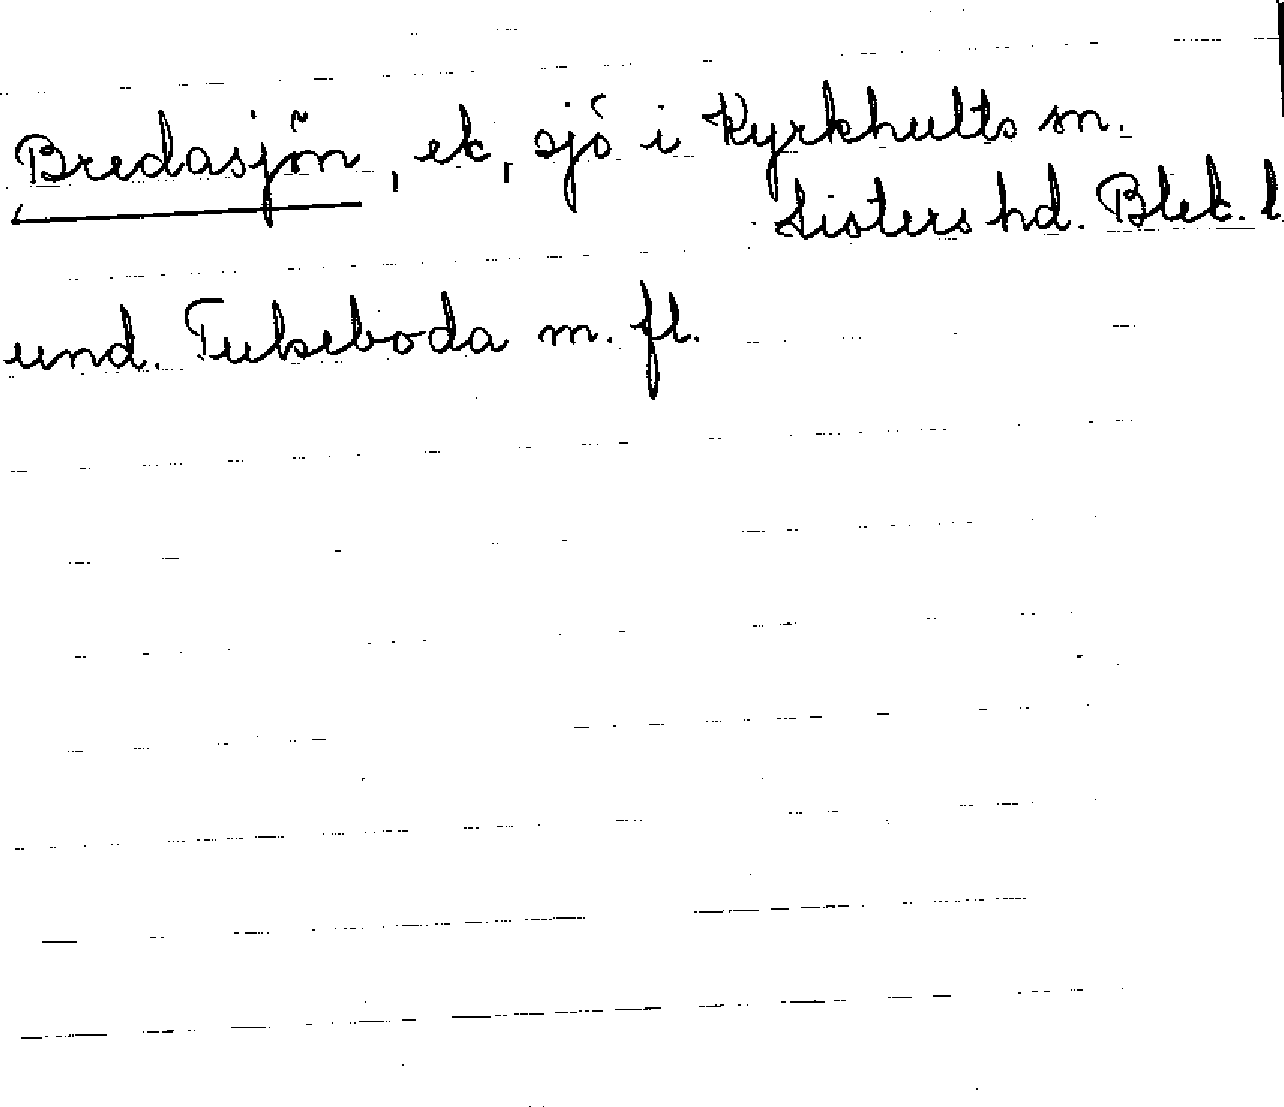 Bredasjön, ek, sjö i Kyrkhults sn.
Listers hd. Blek. l
und. Tukeboda m. fl.